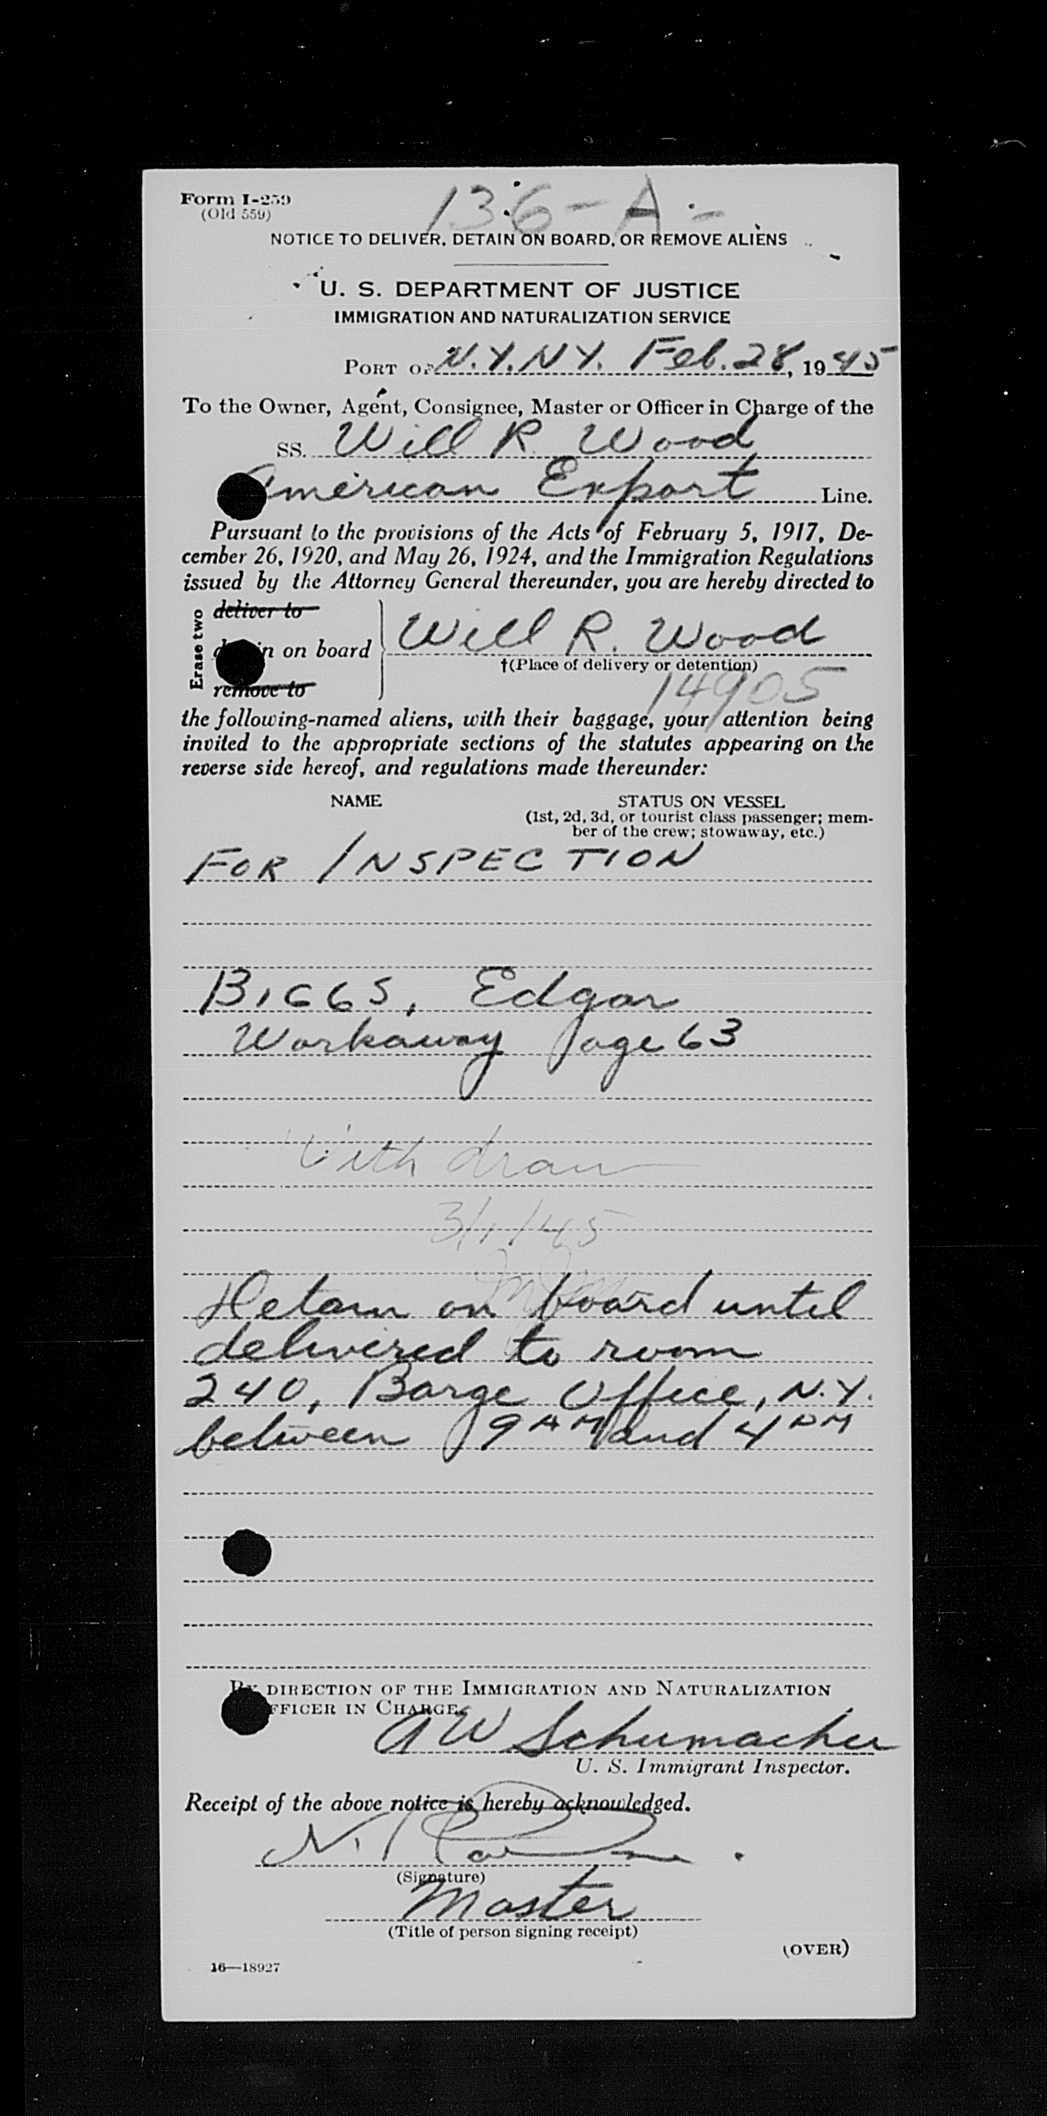 Form I-259
(Old 559)
136-A-
NOTICE TO DELIVER, DETAIN ON BOARD, OR REMOVE ALIENS
U. S. DEPARTMENT OF JUSTICE
IMMIGRATION AND NATURALIZATION SERVICE
PORT OF N.Y. N.Y. Feb. 28, 1945
To the Owner, Agent, Consignee, Master or Officer in Charge of the
SS. Will R. Wood
American Export Line.
Pursuant to the provisions of the Acts of February 5, 1917, De-
cember 26, 1920, and May 26, 1924, and the Immigration Regulations
issued by the Attorney General thereunder, you are hereby directed to
Erase two
deliver to
on board Will R. Wood
†(Place of delivery or detention)
remove to
14905
the following-named aliens, with their baggage, your attention being
invited to the appropriate sections of the statutes appearing on the
reverse side hereof, and regulations made thereunder:
NAME STATUS ON VESSEL
(1st, 2d, 3d, or tourist class passenger; mem-
ber of the crew; stowaway, etc.)
FOR INSPECTION
BIGGS, Edgar
Workaway Page 63
Withdrawn
3/1/45
Detain on board until
delivered to room
240, Barge Office, N.Y.
between 9 AM and 4 PM
BY DIRECTION OF THE IMMIGRATION AND NATURALIZATION
OFFICER IN CHARGE.
A W Schumacher
U. S. Immigrant Inspector.
Receipt of the above notice is hereby acknowledged.
(Signature)
Master
(Title of person signing receipt)
(OVER)
16—18927